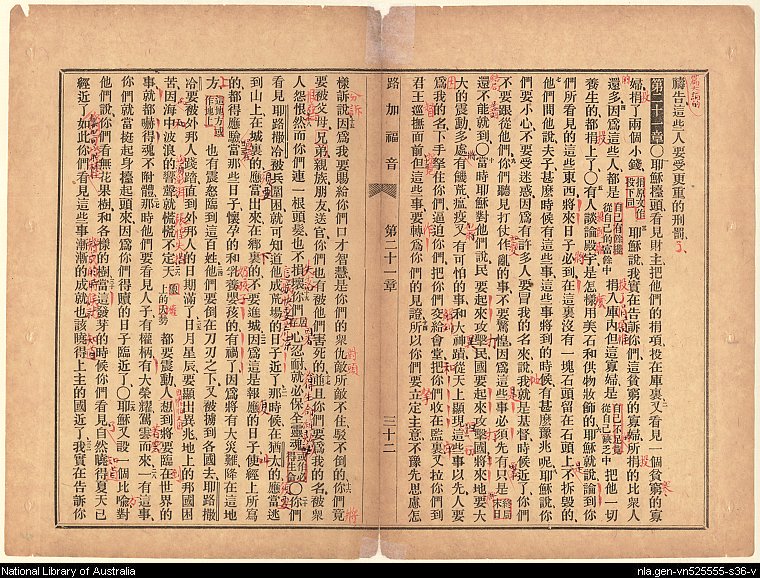 禱告這些人要受更重的刑罰
第二十一章〇耶穌擡頭看見財主把他們的捐項投在庫裏又看見一個貧窮的寡
婦捐了兩個小錢捐原文作投下同耶穌說我實在告訴你們這貧窮的寡婦所捐的比衆人
還多因爲這些人都是自己有餘從自己的富餘中捐入庫內但這寡婦是自己不足從自己缺乏中把他一切
養生的都捐上了〇有人談論殿宇是怎樣用美石和供物妝飾的耶穌就說論到你
們所看見的這些東西將來日子必到在這裏沒有一塊石頭留在石頭上不拆毀的
他們問他說夫子甚麼時候有這些事這些事將到的時候有甚麼豫兆呢耶穌說你
們要小心不要受迷惑因爲有許多人要冒我的名來說我就是基督時候近了你們
不要跟從他們你們聽見打仗作亂的事不要驚惶因爲這些事必須先有只是終局末日
還不能就到〇當時耶穌對他們說民要起來攻擊民國要起來攻擊國將來地要大
大的震動多處有饑荒瘟疫又有可怕的事和大神蹟從天上顯現這些事以先人要
爲我的名下手拏住你們逼迫你們把你們交給會堂把你們收在監裏又拉你們到
君王巡撫面前但這些事要轉爲你們的見證所以你們要立定主意不豫先思慮怎
路加福音 第二十一章 三十二
樣訴說因爲我要賜給你們口才智慧是你們的衆仇敵所敵不住駁不倒的你們竟
要被父母兄弟親族朋友送官你們也有被他們害死的並且你們要爲我的名被衆
人怨恨然而你們連一根頭髮也不損壞你們心忍耐就必保全靈魂或作必得生命〇你們
看見耶路撒冷被兵圍困就可知道他成荒塲的日子近了那時候在猶太的應當逃
到山上在城裏的應當出來在鄉裏的不要進城因爲這是報應的日子使經上所寫
的都得應驗當那些日子懷孕的和乳養嬰孩的有禍了因爲將有大災難降在這地
方這地方或作地上也有震怒臨到這百姓他們要倒在刀刃之下又被擄到各國去耶路撒
冷要被外邦人踐踏直到外邦人的日期滿了日月星辰要顯出異兆地上的邦國困
苦因海中波浪的響聲就慌慌不定天上的大勢都要震動人想到將要臨在世界的
事就都嚇得魂不附體那時他們要看見人子有權柄有大榮耀駕雲而來一有這事
你們就當挺起身擡起頭來因爲你們得贖的日子臨近了〇耶穌又設一個比喻對
他們說你們看無花果樹和各樣的樹當這發芽的時候你們看見自然曉得夏天已
經近了如此你們看見這些事漸漸的成就也該曉得上主的國近了我實在告訴你
National Library of Australia
nla.gen-vn525555-s36-v